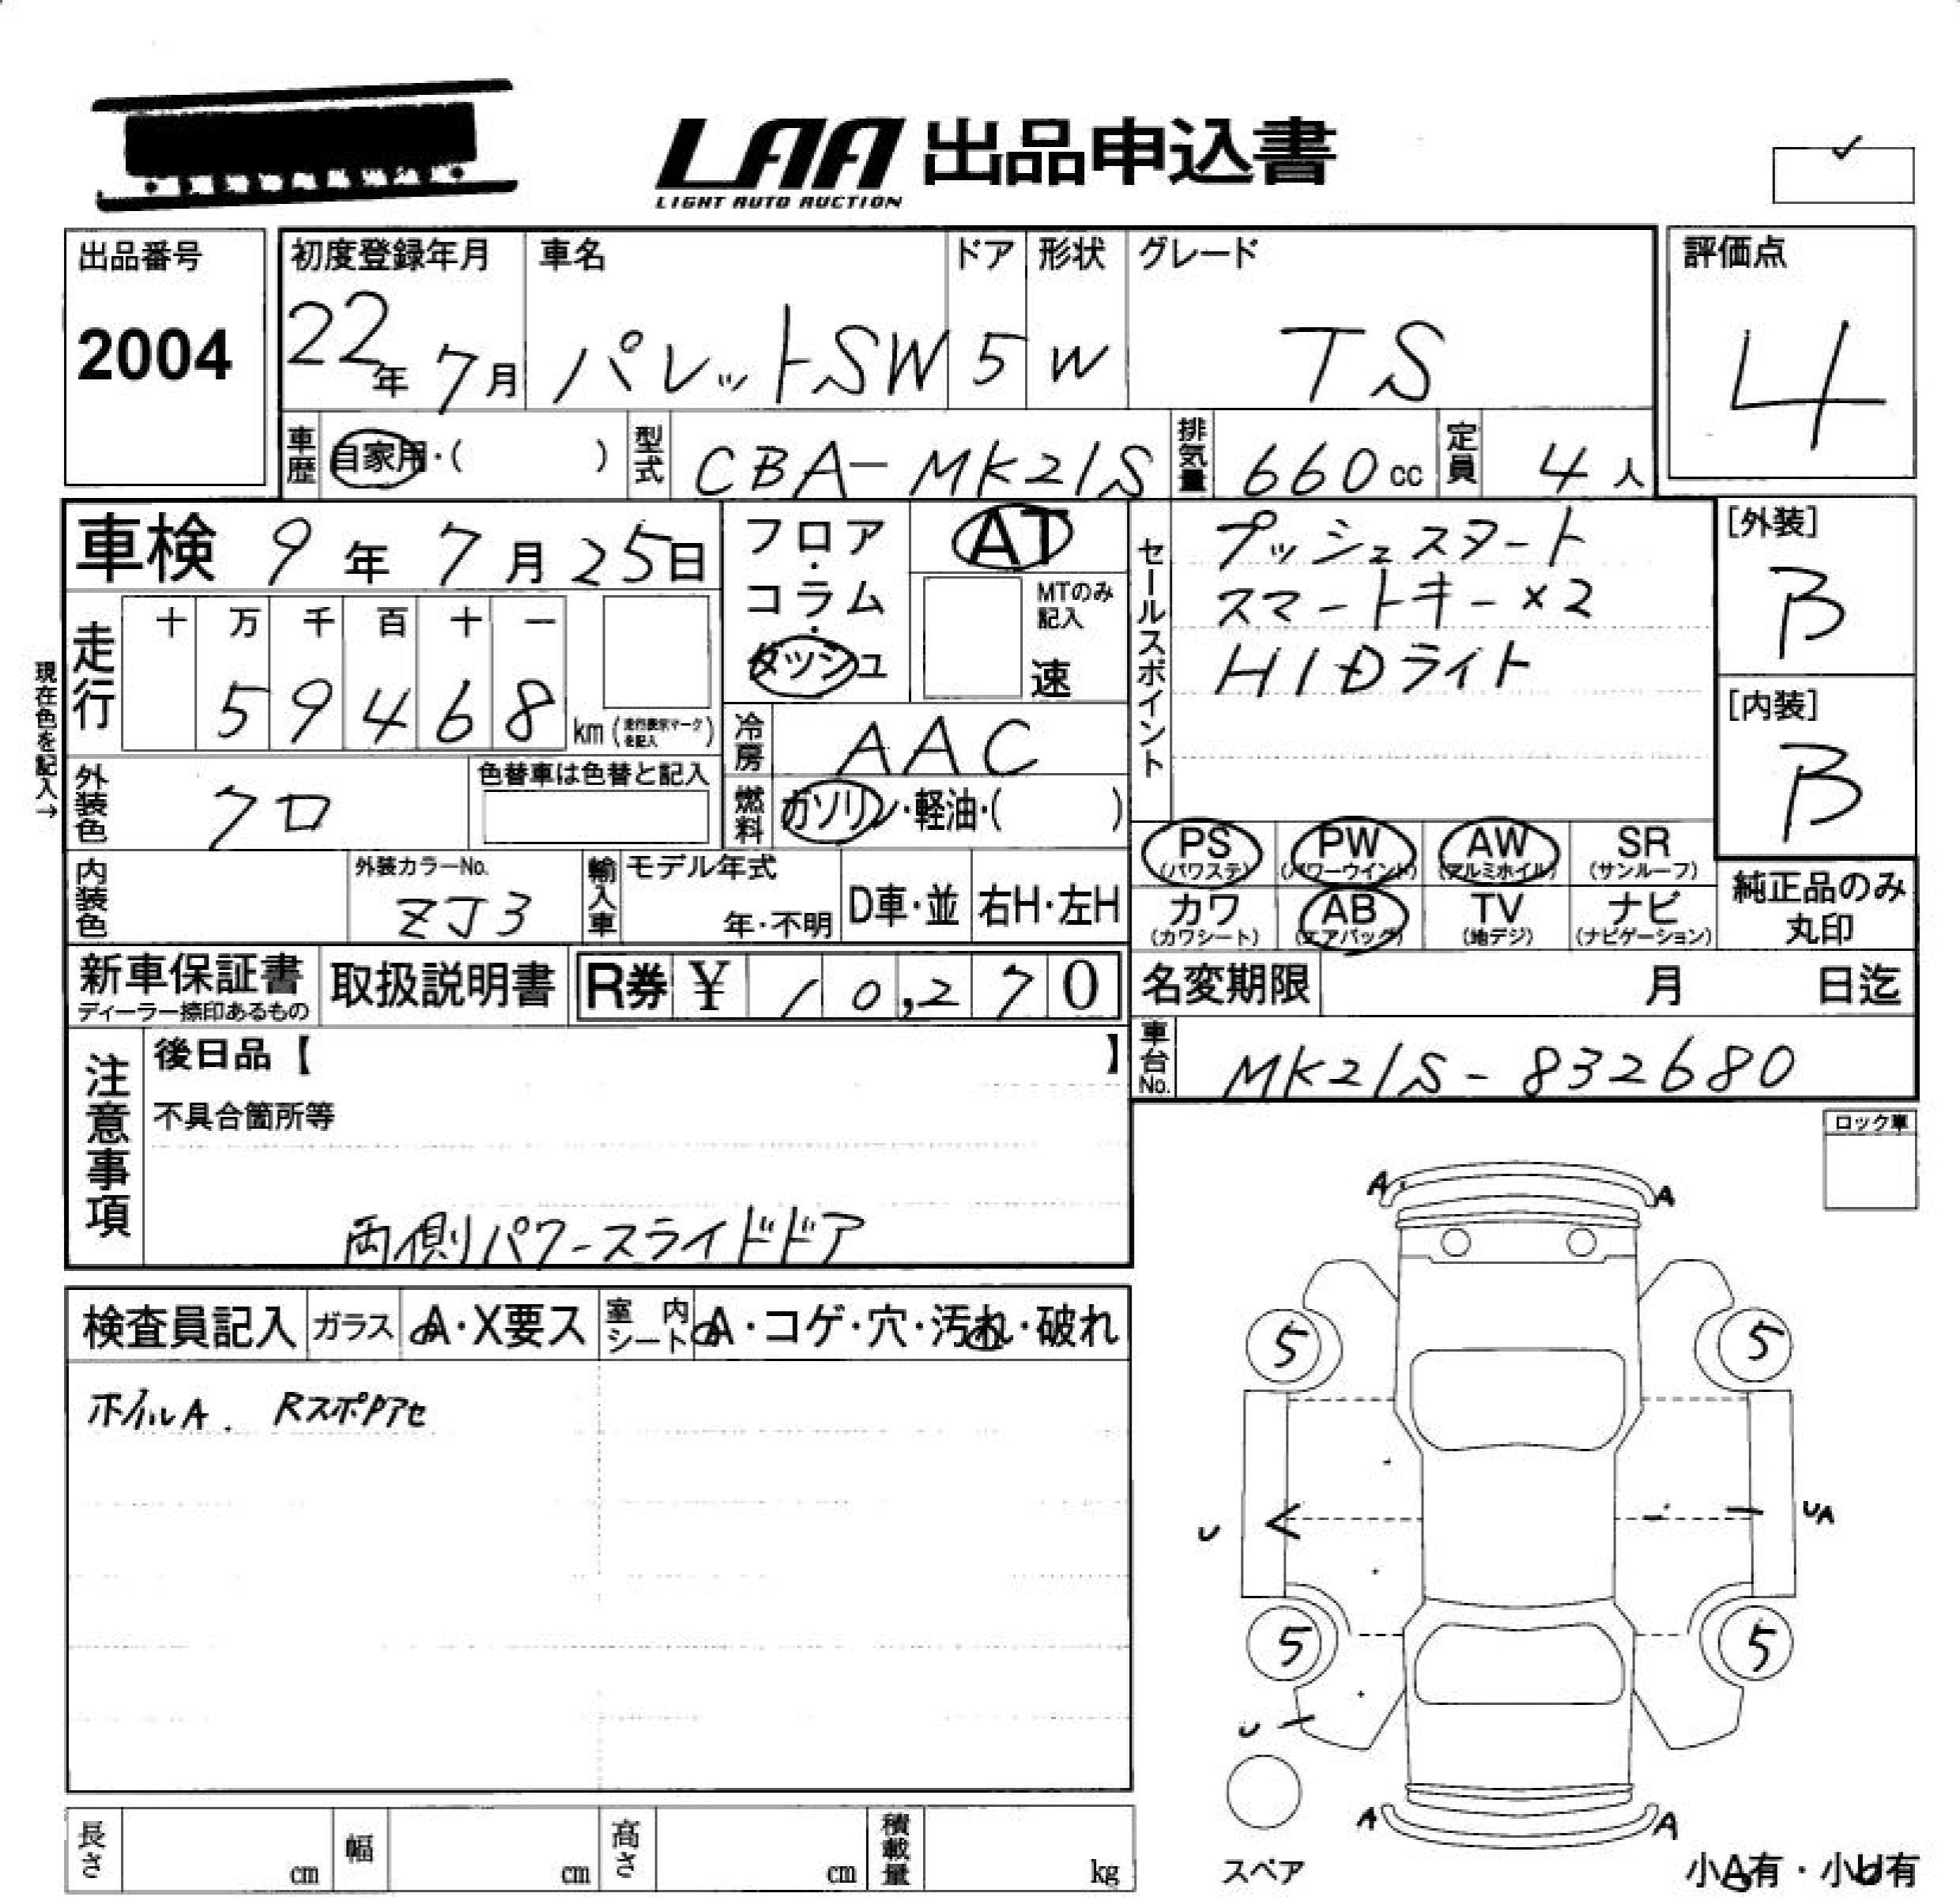 LAA 出品申込書
LIGHT AUTO AUCTION
出品番号
2004
初度登録年月
22年 7月
車名
パレットSW
ドア
5
形状
W
グレード
TS
評価点
4
車歴 自家用・( )
型式 CBA-MK21S
排気量 660cc
定員 4人
車検 9年 7月 25日
フロア・コラム・ダッシュ
AT
MTのみ記入
速
セールスポイント
プッシュスタート
スマートキー×2
HIDライト
[外装]
B
[内装]
B
現在色を記入→
走行
十 万 千 百 十 一
5 9 4 6 8 km (走行表示マークを記入)
冷房 AAC
燃料 ガソリン・軽油・( )
外装色 クロ
色替車は色替と記入
内装色
外装カラーNo.
ZJ3
輸入車
モデル年式
年・不明
D車・並
右H・左H
PS (パワステ)
PW (パワーウインド)
AW (アルミホイル)
SR (サンルーフ)
カワ (カワシート)
AB (エアバッグ)
TV (地デジ)
ナビ (ナビゲーション)
純正品のみ
丸印
新車保証書
ディーラー捺印あるもの
取扱説明書
R券 ¥ 10,270
名変期限 月 日迄
車台No. MK21S-832680
注意事項
後日品【 】
不具合箇所等
両側パワースライドドア
ロック車
検査員記入
ガラス A・X要ス
室内シート A・コゲ・穴・汚れ・破れ
ホイルA. RスポクアセA
A A
5 5
U UA
5 5
U
A A
スペア
小A有・小U有
長さ cm
幅 cm
高さ cm
積載量 kg